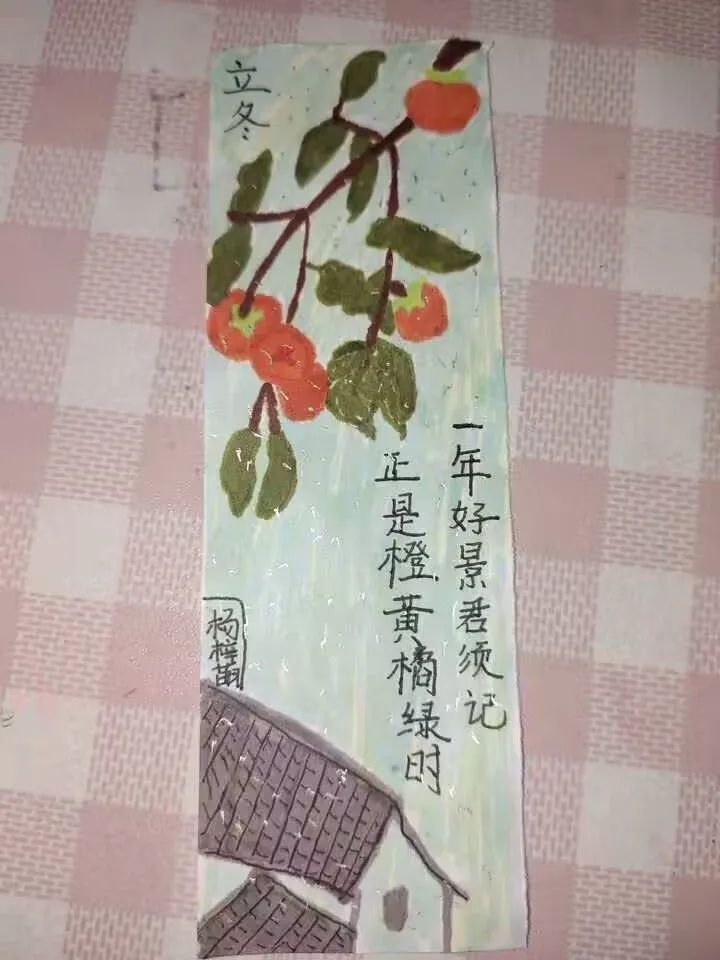 立冬
一年好景君须记
正是橙黄橘绿时
杨梓萌